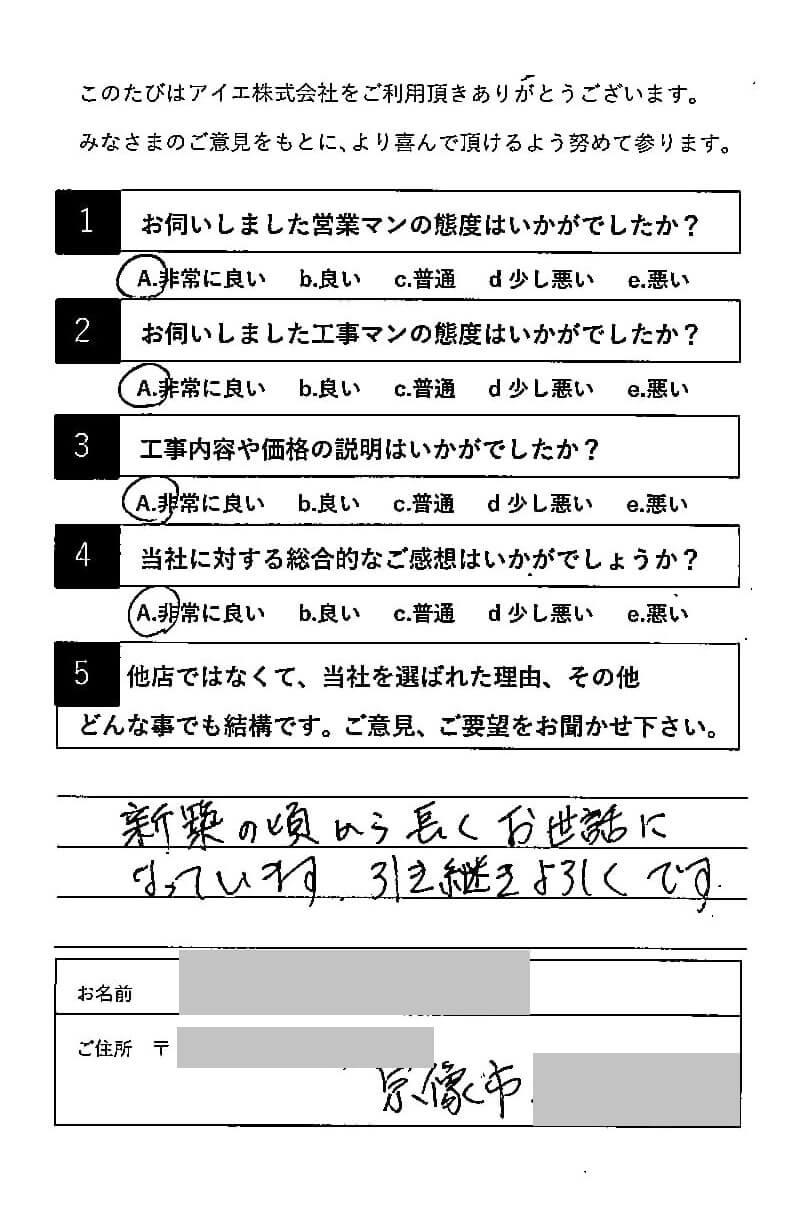 このたびはアイエ株式会社をご利用頂きありがとうございます。
みなさまのご意見をもとに、より喜んで頂けるよう努めて参ります。
1 お伺いしました営業マンの態度はいかがでしたか？
A.非常に良い b.良い c.普通 d 少し悪い e.悪い
2 お伺いしました工事マンの態度はいかがでしたか？
A.非常に良い b.良い c.普通 d 少し悪い e.悪い
3 工事内容や価格の説明はいかがでしたか？
A.非常に良い b.良い c.普通 d 少し悪い e.悪い
4 当社に対する総合的なご感想はいかがでしょうか？
A.非常に良い b.良い c.普通 d 少し悪い e.悪い
5 他店ではなくて、当社を選ばれた理由、その他
どんな事でも結構です。ご意見、ご要望をお聞かせ下さい。
新築の頃から長くお世話に
なっています。引き継きよろしくです。
お名前
ご住所 〒
宗像市